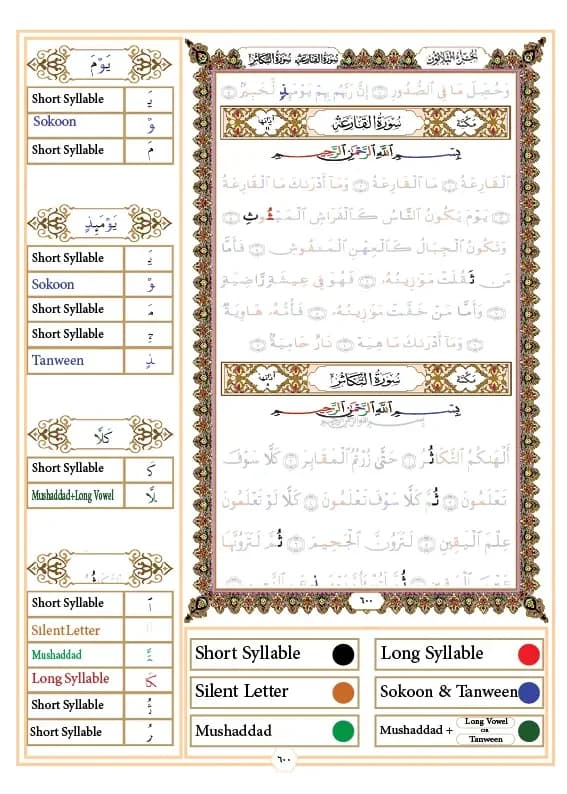 يَوْمَ
Short Syllable يَـ
Sokoon وْ
Short Syllable مَ
يَوْمَىِٕذٍ
Short Syllable يَـ
Sokoon وْ
Short Syllable مَـ
Short Syllable ـىِٕـ
Tanween ـذٍ
كَلَّا
Short Syllable كَـ
Mushaddad+Long Vowel ـلَّا
Short Syllable اَ
Silent Letter
Mushaddad
Long Syllable كَا
Short Syllable ـثُـ
Short Syllable رُ
الجزء الثلاثون سورة القارعة سورة التكاثر
وَحُصِّلَ مَا فِى ٱلصُّدُورِ إِنَّ رَبَّهُم بِهِمْ يَوْمَئِذٍ لَّخَبِيرٌ
مكية سورة القارعة آياتها
بِسْمِ ٱللَّهِ ٱلرَّحْمَٰنِ ٱلرَّحِيمِ
ٱلْقَارِعَةُ مَا ٱلْقَارِعَةُ وَمَآ أَدْرَىٰكَ مَا ٱلْقَارِعَةُ
يَوْمَ يَكُونُ ٱلنَّاسُ كَٱلْفَرَاشِ ٱلْمَبْثُوثِ
وَتَكُونُ ٱلْجِبَالُ كَٱلْعِهْنِ ٱلْمَنفُوشِ فَأَمَّا
مَن ثَقُلَتْ مَوَٰزِينُهُۥ فَهُوَ فِى عِيشَةٍ رَّاضِيَةٍ
وَأَمَّا مَنْ خَفَّتْ مَوَٰزِينُهُۥ فَأُمُّهُۥ هَاوِيَةٌ
وَمَآ أَدْرَىٰكَ مَا هِيَهْ نَارٌ حَامِيَةٌۢ
مكية سورة التكاثر آياتها
بِسْمِ ٱللَّهِ ٱلرَّحْمَٰنِ ٱلرَّحِيمِ
أَلْهَىٰكُمُ ٱلتَّكَاثُرُ حَتَّىٰ زُرْتُمُ ٱلْمَقَابِرَ كَلَّا سَوْفَ
تَعْلَمُونَ ثُمَّ كَلَّا سَوْفَ تَعْلَمُونَ كَلَّا لَوْ تَعْلَمُونَ
عِلْمَ ٱلْيَقِينِ لَتَرَوُنَّ ٱلْجَحِيمَ ثُمَّ لَتَرَوُنَّهَا
عَيْنَ ٱلْيَقِينِ ثُمَّ لَتُسْـَٔلُنَّ يَوْمَئِذٍ عَنِ ٱلنَّعِيمِ
٦٠٠
Short Syllable
Long Syllable
Silent Letter
Sokoon & Tanween
Mushaddad
Mushaddad + Long Vowel OR Tanween
٦٠٠